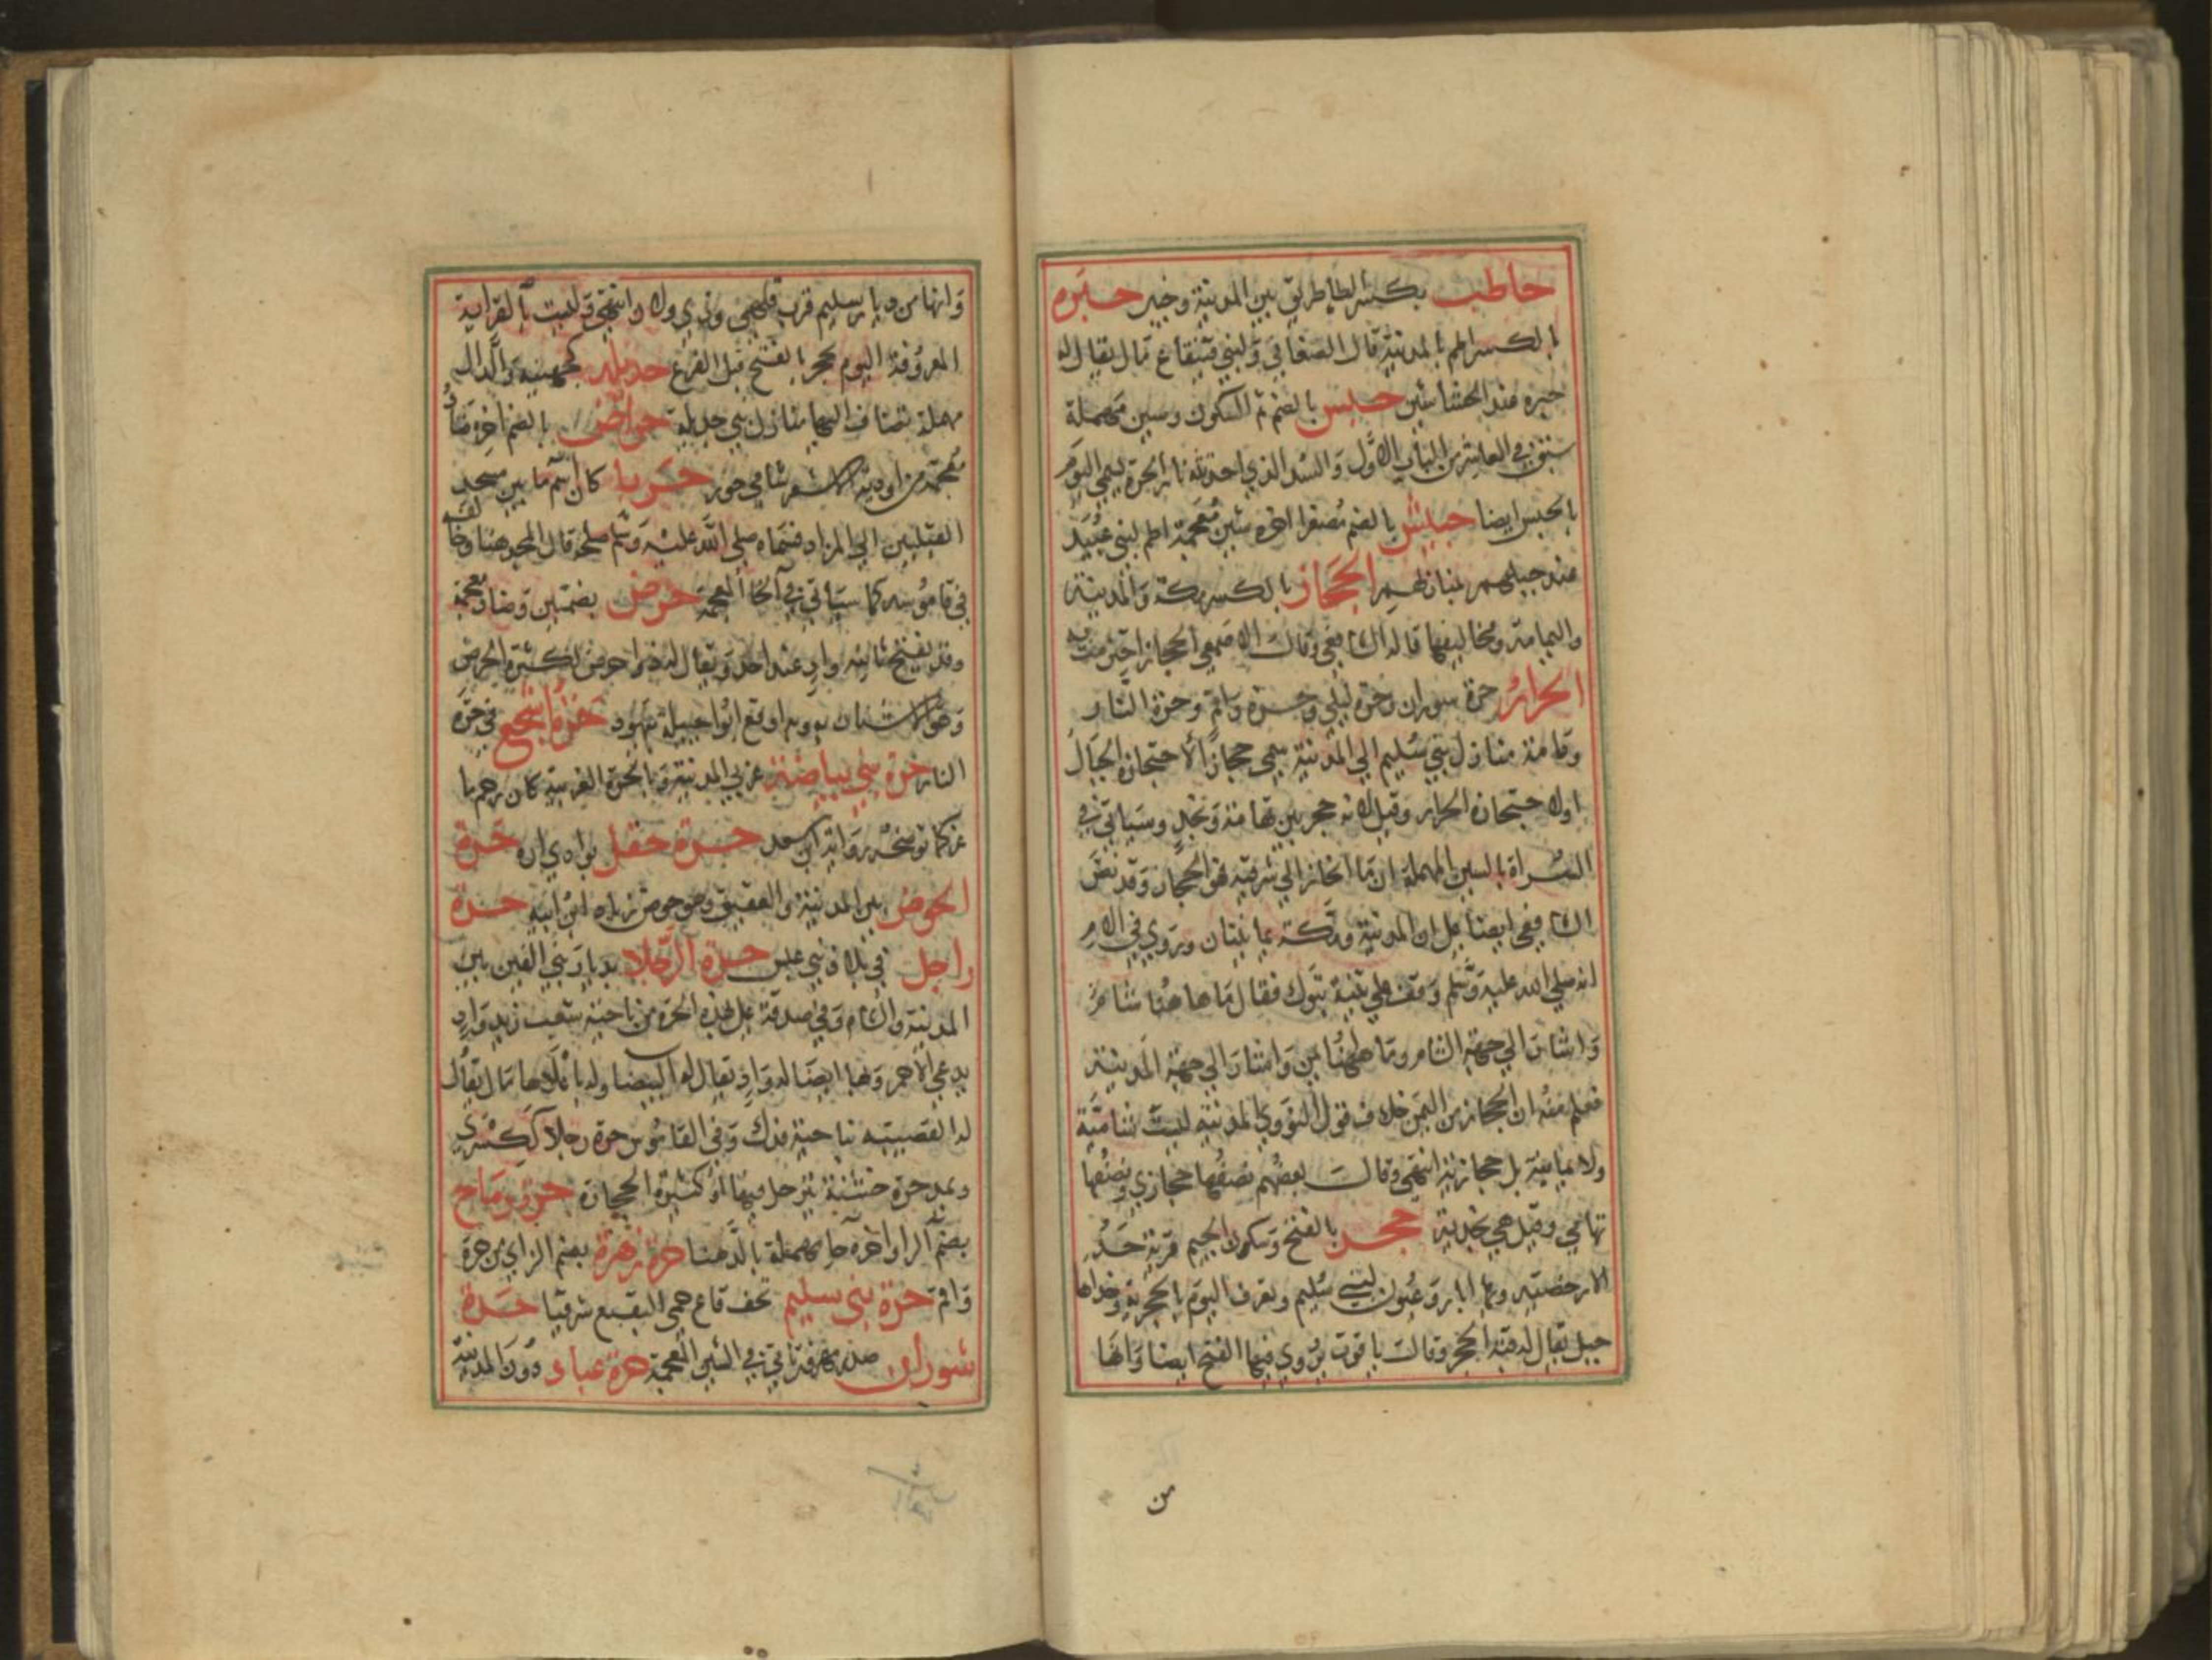 حاطب بكسر الطا طريق بين المدينة وخيبر حبره
بالكسر اطم بالمدينة قال الصغاني ولبني قينقاع مال يقال له
حبره عند الحشاشين حبس بالضم ثم السكون وسين مهملة
سبق في العاشر من الباب الاول والسد الذي احدثته نار الحرة يسمى اليوم
بالحبس ايضا حبيش بالضم مصغرا اخره شين معجمة اطم لبني عبيد
عند جبلهم بمنازلهم الحجاز بالكسر مكة والمدينة
واليمامة ومخاليفها قاله الشافعي وقال الاصمعي الحجاز احترمت به
الحرار حرة شوران وحرة ليلى وحرة واقم وحرة النار
وعامة منازل بني سليم الى المدينة سمي حجازا لاحتجازه بالجبال
اولاحتجازه بالحرار وقيل لانه حجز بين تهامة ونجد وسياتي في
السراة بالسين المهملة ان ما انحاز الى شرقيه فهو الحجاز وقد نص
الشافعي ايضا على ان المدينة ومكة يمانيتان وروي في الام
انه صلى الله عليه وسلم وقف على ثنية تبوك فقال ما هاهنا شام
واشار الى جهة الشام وما هاهنا يمن واشار الى جهة المدينة
فعلم منه ان الحجاز من اليمن خلاف قول النووي المدينة ليست شامية
ولا يمانية بل حجازية انتهى وقال بعضهم نصفها حجازي ونصفها
تهامي وقيل هي نجدية حجر بالفتح وسكون الجيم قرية حد
الارحضية وبها ابار وعيون لبني سليم وتعرف اليوم بالحجرية وحذاها
جبل يقال له قنة الحجر وقال ياقوت يروى فيها الفتح ايضا وانها
من
وانها من ديار سليم قرب قلهى وذي رولان انتهى وليست بالقرابية
المعروفة اليوم بحجر بالفتح قبل الفرع حديلة كجهينة والدال
مهملة تضاف اليها منازل بني حديلة حراض بالضم اخره ضاد
معجمة من اودية الاشعر شامي حورة حربا كان اسم ما بين مسجد
القبلتين الى المزاد فسماه صلى الله عليه وسلم صلحة قال المجد هنا وخالفه
في قاموسه كما سياتي في الخا المعجمة حرض بضمتين وضاد معجمة
وقد يفتح ثانيه واد عند احد ويقال له ذو حرض لكثرة الحرض
وهو الاشنان به وبه اوقع ابو جبيلة بيهود حرة اشجع في حرة
النار حرة بني بياضة غربي المدينة وبالحرة الغربية كان رجم ما
عز كما توضحه رواية ابن سعد حرة حقل بوادي ارة حرة
الحوض بين المدينة والعقيق وهو حوض زياد ابن ابيه حرة
راجل في بلاد بني عبس حرة الرجلا بديار بني القين بين
المدينة والشام وفي صدقة على هذه الحرة من ناحية شعب زيد واد
يدعى الاحمر وبها ايضا له واد يقال له البيضا وله باعلاها مال يقال
له القصيبة بناحية فدك وفي القاموس حرة رجلا كسكرى
ويمد حرة خشنة يترجل فيها او كثيرة الحجارة حرة رماح
بضم الرا واخره حا مهملة بالدهنا حرة زهرة بضم الزاي من حرة
واقم حرة بني سليم تحت قاع حمى النقيع شرقيا حرة
شوران صدر مهزور تاتي في الشين المعجمة حرة عباد دون المدينة